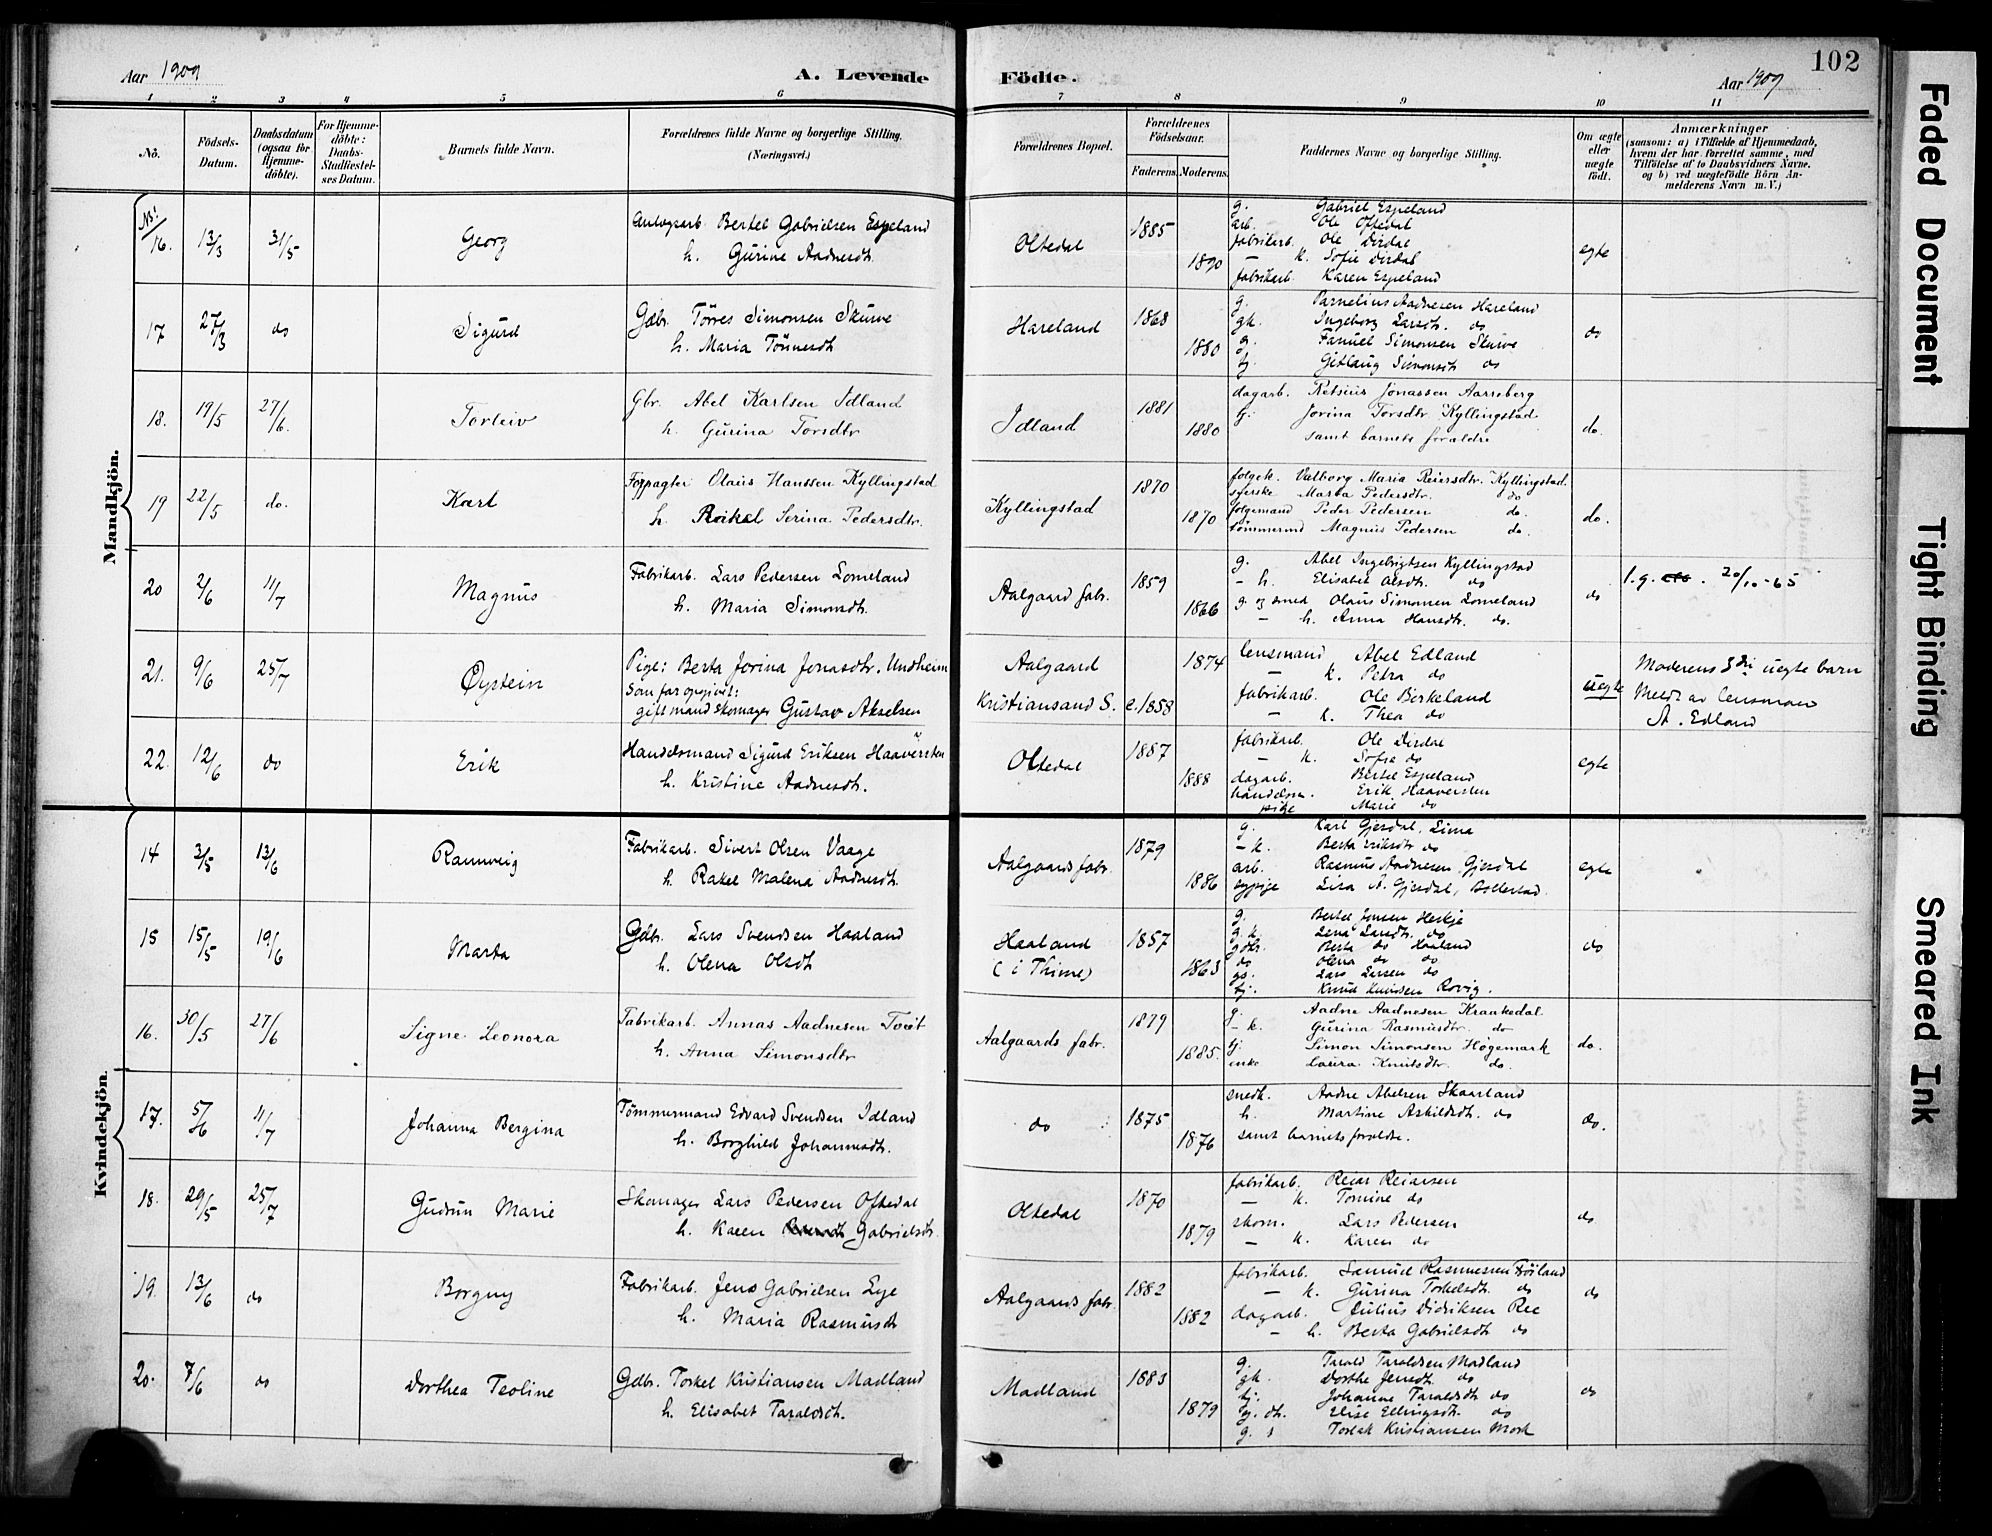 Aar 1909
A. Levende
Födte.
102
Aar 1909
1 2 3 4 5 6 7 8 9 10 11
No.
Födsels-Datum.
Daabsdatum (ogsaa for Hjemme-döbte).
For Hjemme-döbte: Daabs-Stadfæstel-ses Datum.
Barnets fulde Navn.
Forældrenes fulde Navne og borgerlige Stilling. (Næringsvei.)
Forældrenes Bopæl.
Forældrenes Födselsaar.
Faderens. Moderens.
Faddernes Navne og borgerlige Stilling.
Om ægte eller uægte födt.
Anmærkninger
(saasom: a) i Tilfælde af Hjemmedaab,
hvem der har forrettet samme, med
Tilföielse af to Daabsvidners Navne.
og b) ved uægtefödte Börn An-
melderens Navn m. V.)
Mandkjön.
16. 13/3 31/5 Georg
Bertel Gabrielsen Espeland
h. Gurine Aadnesdt.
Oltedal 1885 1890
g. Gabriel Espeland
arb. Ole Oftedal
fabrikarb. Ole Dirdal
— k. Sofie Dirdal
fabrikarb. Karen Espeland
egte
17 27/3 do Sigurd
Gdbr. Törres Simonsen Skurve
h. Maria Tönnesdt
Hareland 1868 1880
g. Parnelius Aadnesen Hareland
gk. Ingeborg Larsdt. do
g. Fanuel Simonsen Skurve
tj. Gitlaug Simonsdt do
do
18. 19/5 27/6. Torleiv
Gbr. Abel Karlsen Idland
h. Gurina Torsdtr
Idland 1881 1880
dagarb. Retsius Jonassen Aarreberg
tj. Jorina Torsdtr Kyllingstad
samt barnets foraldre
do.
19 22/5 do. Karl
Forpagter Olaus Hanssen Kyllingstad
h. Raikel Serina Pedersdtr.
Kyllingstad 1870 1870
folgek. Valborg Maria Reiersdtr. Kyllingstad.
syerske Marta Pedersdtr. do
folgemand Peder Pedersen do.
tömmermd Magnus Pedersen do.
do.
20 2/6 11/7 Magnus
Fabrikarb. Lars Pedersen Lomeland
h. Maria Simonsdt.
Aalgaard fabr. 1859 1866
g. Abel Ingebrigtsen Kyllingstad
— h. Elisabet Olsdt. do
g. og smed Olaus Simonsen Lomeland
— h. Anna Hansdt. do.
do
20/10-65
21. 9/6 25/7 Øystein
Pige: Berta Jorina Jonasdtr. Undheim
Som far opgivet:
gift mand skomager Gustav Akselsen
Aalgaard 1874
Kristiansand S. c. 1858
lensmand Abel Edland
— k. Petra do
fabrikarb. Ole Birkeland
— k. Thea do
uegte
Moderens 3die uegte barn
Meldt av lensman
A. Edland
22. 12/6 do Erik
Handelsmand Sigurd Eriksen Haaversten
h. Kristine Aadnesdt.
Oltedal 1887 1888
fabrikarb. Ole Dirdal
— k. Sofie do
dagarb. Bertel Espeland
handelsm. Erik Haaversten
pike Marie do
egte
Kvindekjön.
14 3/5 13/6 Rannveig
Fabrikarb. Sivert Olsen Vaage
h. Rakel Malena Aadnesdt.
Aalgaards fabr. 1879 1886
g. Karl Gjesdal, Lima
— k. Berta Eriksdt do
arb. Rasmus Aadnesen Gjesdal
sypige Lisa A. Gjesdal,
egte
15 15/5 19/6 Marta
Gdbr. Lars Svendsen Haaland
h. Olena Olsdt
Haaland (i Thime) 1857 1863
g. Bertel Jonsen Heskje
g.k. Lena Larsdt. do
gdtr. Berta do Haaland
do Olena do do
gs. Lars Larsen do
tj. Knud Knudsen Rovig.
do
16. 30/5 27/6 Signe Leonora
Fabrikarb. Annas Aadnesen Tveit
h. Anna Simonsdtr
Aalgaards fabr. 1879 1885.
g. Aadne Aadnesen Kraakedal
— k. Gurina Rasmusdtr. do
tj. Simon Simonsen Högemark
enke Laura Knutsdtr do.
do.
17. 5/6 11/7 Johanna Bergina
Tömmermand Edvard Svendsen Idland
h. Borghild Johannesdt.
do 1875 1876
snedk. Aadne Abelsen Skaarland
h. Martine Askildsdt. do
samt barnets foraldre.
do.
18. 29/5 25/7 Gudrun Marie
Skomager Lars Pedersen Oftedal
h. Karen Gabrielsdt.
Oltedal 1870 1879
fabrikarb. Reier Reiersen
— k. Tomine do
skom. Lars Pedersen
— k. Karen do
do
19. 13/6 do Borgny
Fabrikarb. Jens Gabrielsen Lye
h. Maria Rasmusdt
Aalgaards fabr. 1882 1882
fabrikarb. Samuel Rasmussen Fröiland
— k. Gurina Torkelsdt. do
dagarb. Julius Didriksen Ree
— h. Berta Gabrielsdt. do
do
20. 7/6 do Dorthea Teoline
Gdbr. Torkel Kristiansen Madland
h. Elisabet Taraldsdt.
Madland 1883 1879
g. Tarald Taraldsen Madland
gk. Dorthe Jensdt. do
tj. Johanne Taraldsdt do
g. dt. Elise Ellingsdt. do
g. s Torleik Kristiansen Mork
do
Faded Document
Tight Binding
Smeared Ink